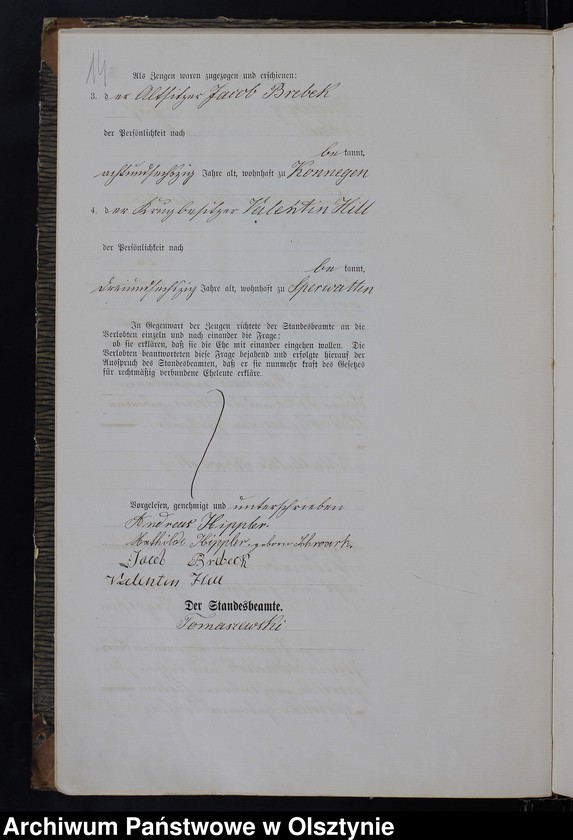 14
Als Zeugen waren zugezogen und erschienen:
3. der Altsitzer Jacob Brebek
der Persönlichkeit nach
be kannt,
achtundsechszig Jahre alt, wohnhaft zu Konnegen
4. der Krugbesitzer Valentin Hill
der Persönlichkeit nach
be kannt,
dreiundsechszig Jahre alt, wohnhaft zu Sperwatten
In Gegenwart der Zeugen richtete der Standesbeamte an die
Verlobten einzeln und nach einander die Frage:
ob sie erklären, daß sie die Ehe mit einander eingehen wollen. Die
Verlobten beantworteten diese Frage bejahend und erfolgte hierauf der
Ausspruch des Standesbeamten, daß er sie nunmehr kraft des Gesetzes
für rechtmäßig verbundene Eheleute erkläre.
Vorgelesen, genehmigt und unterschrieben
Andreas Hippler.
Mathilde Hippler, geborne Schwark.
Jacob Brebeck
Valentin Hill
Der Standesbeamte.
Tomaszewski
Archiwum Państwowe w Olsztynie